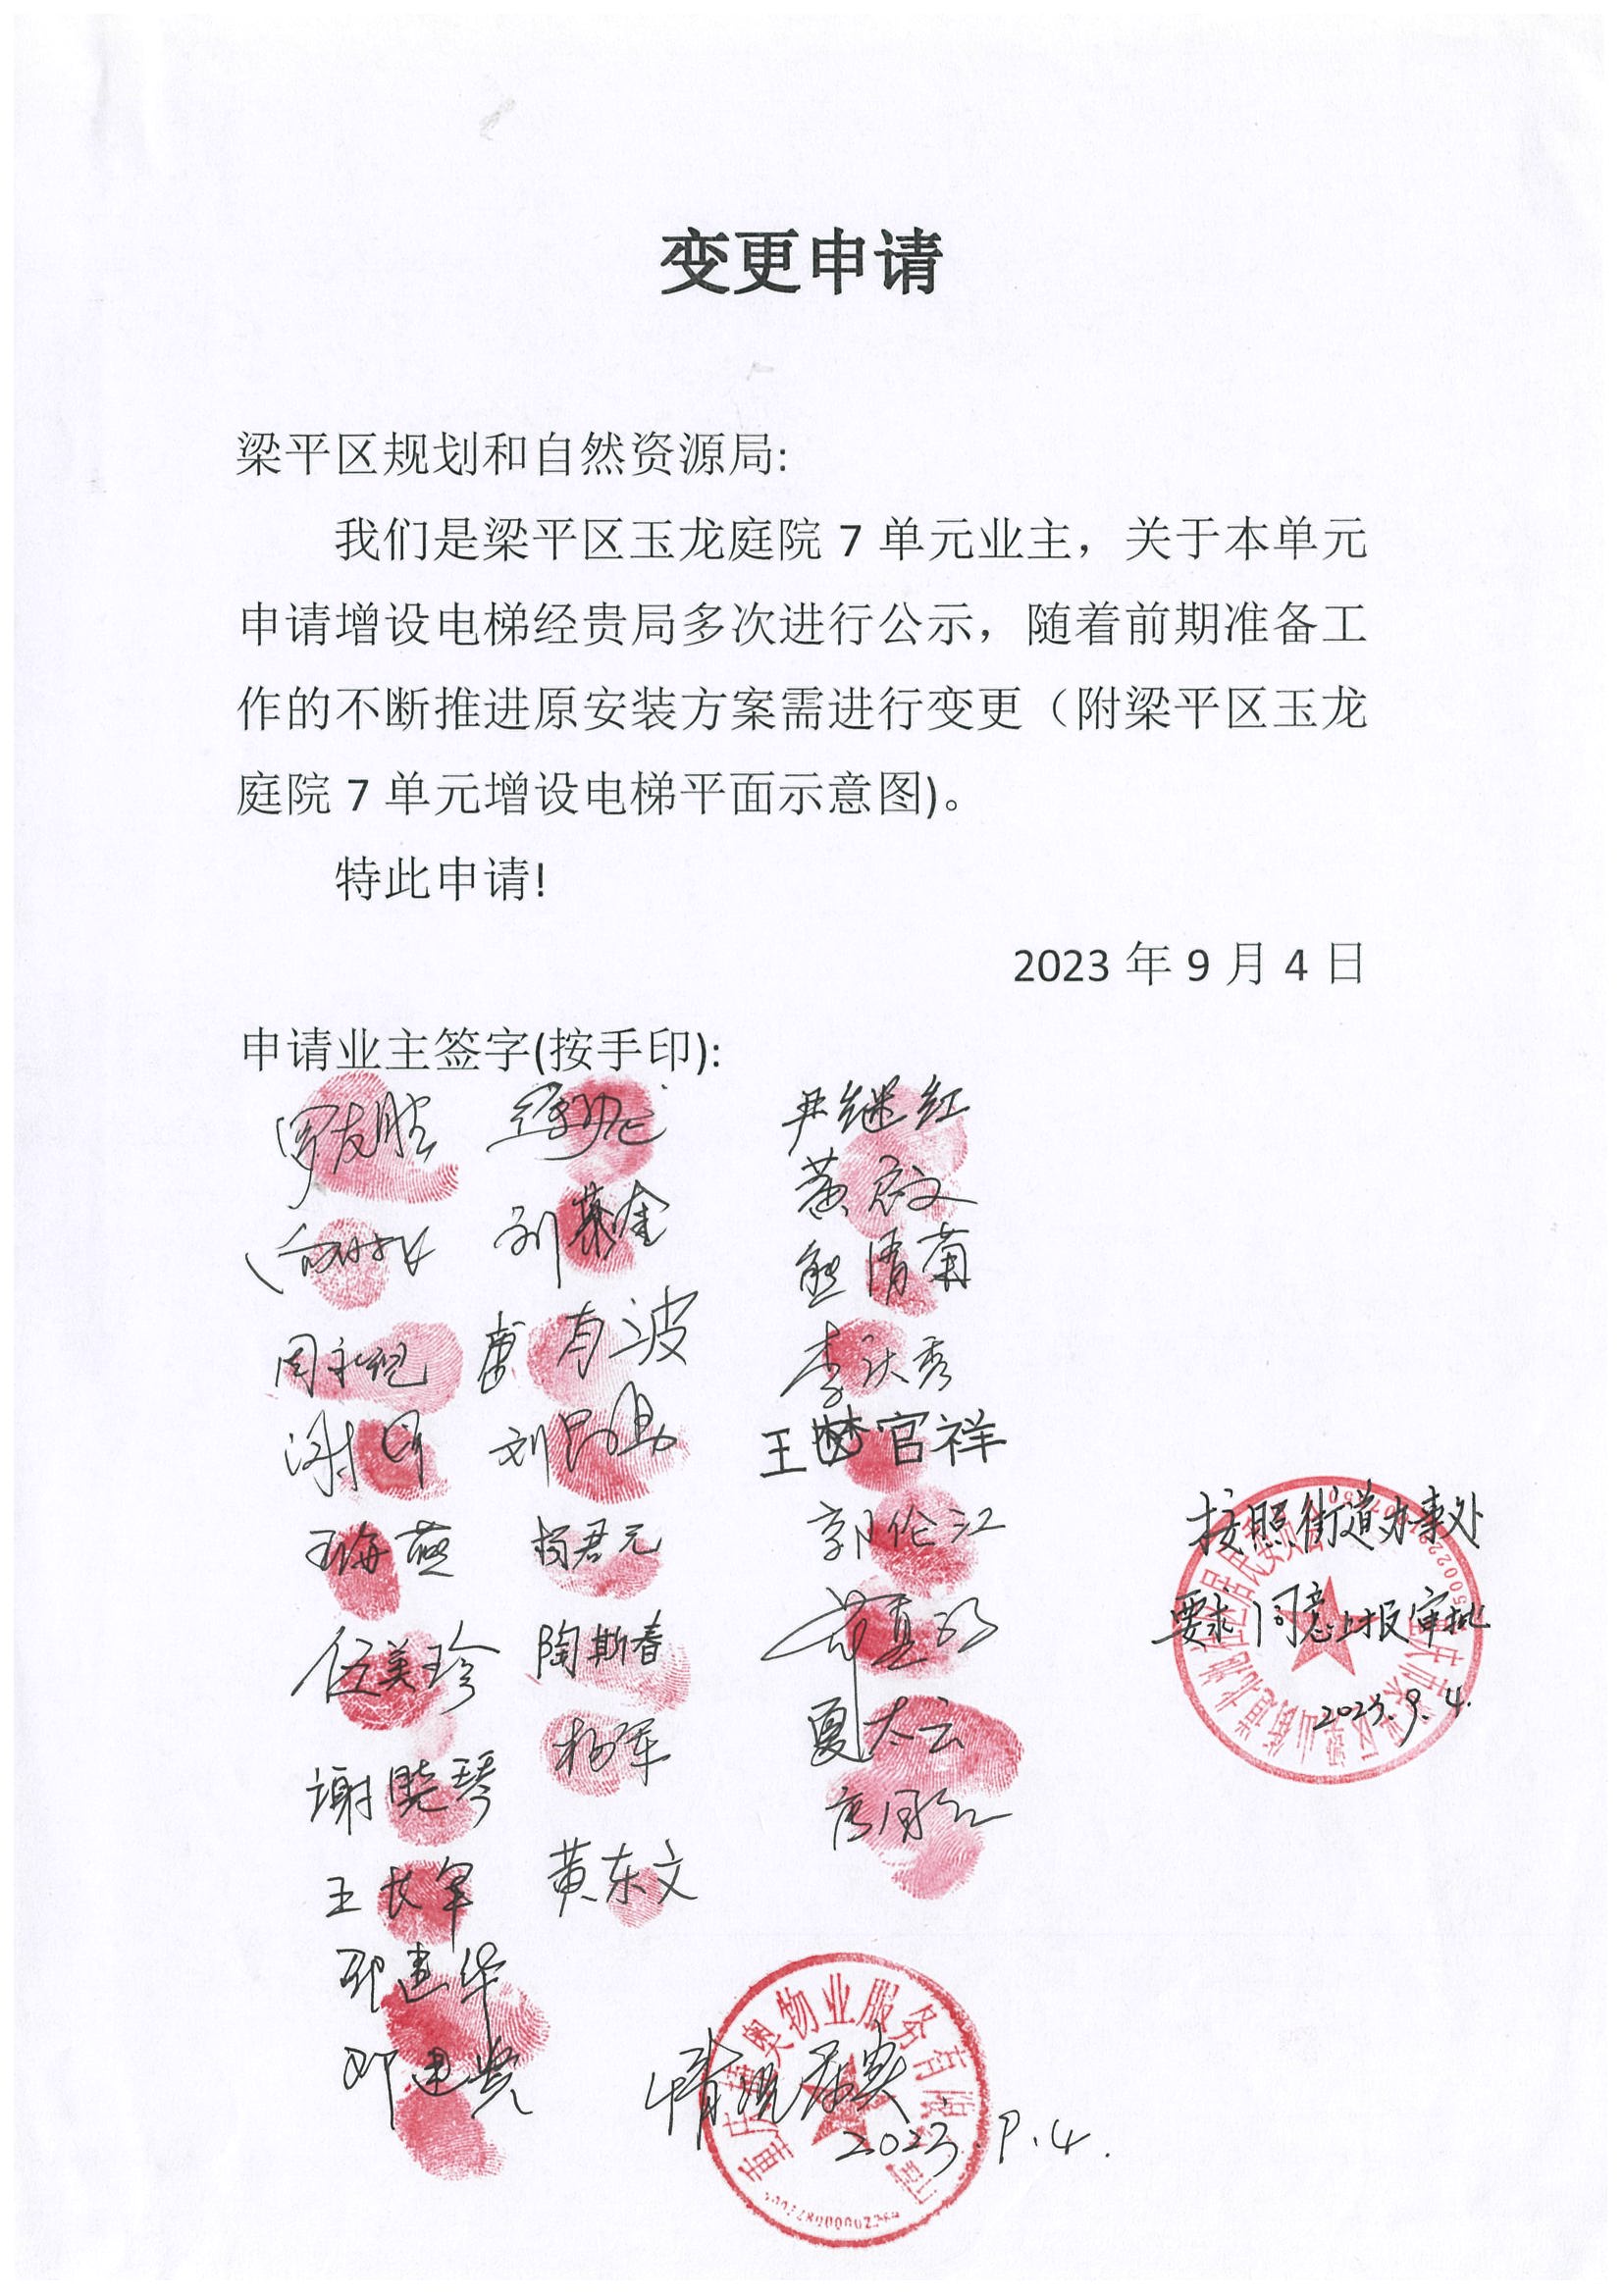 变更申请
梁平区规划和自然资源局:
我们是梁平区玉龙庭院 7 单元业主，关于本单元
申请增设电梯经贵局多次进行公示，随着前期准备工
作的不断推进原安装方案需进行变更（附梁平区玉龙
庭院 7 单元增设电梯平面示意图)。
特此申请!
2023 年 9 月 4 日
申请业主签字(按手印):
尹继红
刘慕奎
熊清菊
李庆秀
王梦官祥
郭伦江
王海燕
杨君元
伍美珍
陶斯春
谢晓琴
杨军
夏太云
王长军
黄东文
邓建华
邓建贵
按照街道办事处
要求同意上报审批
2023.9.4.
情况属实
2023.9.4.
奥物业服务有限